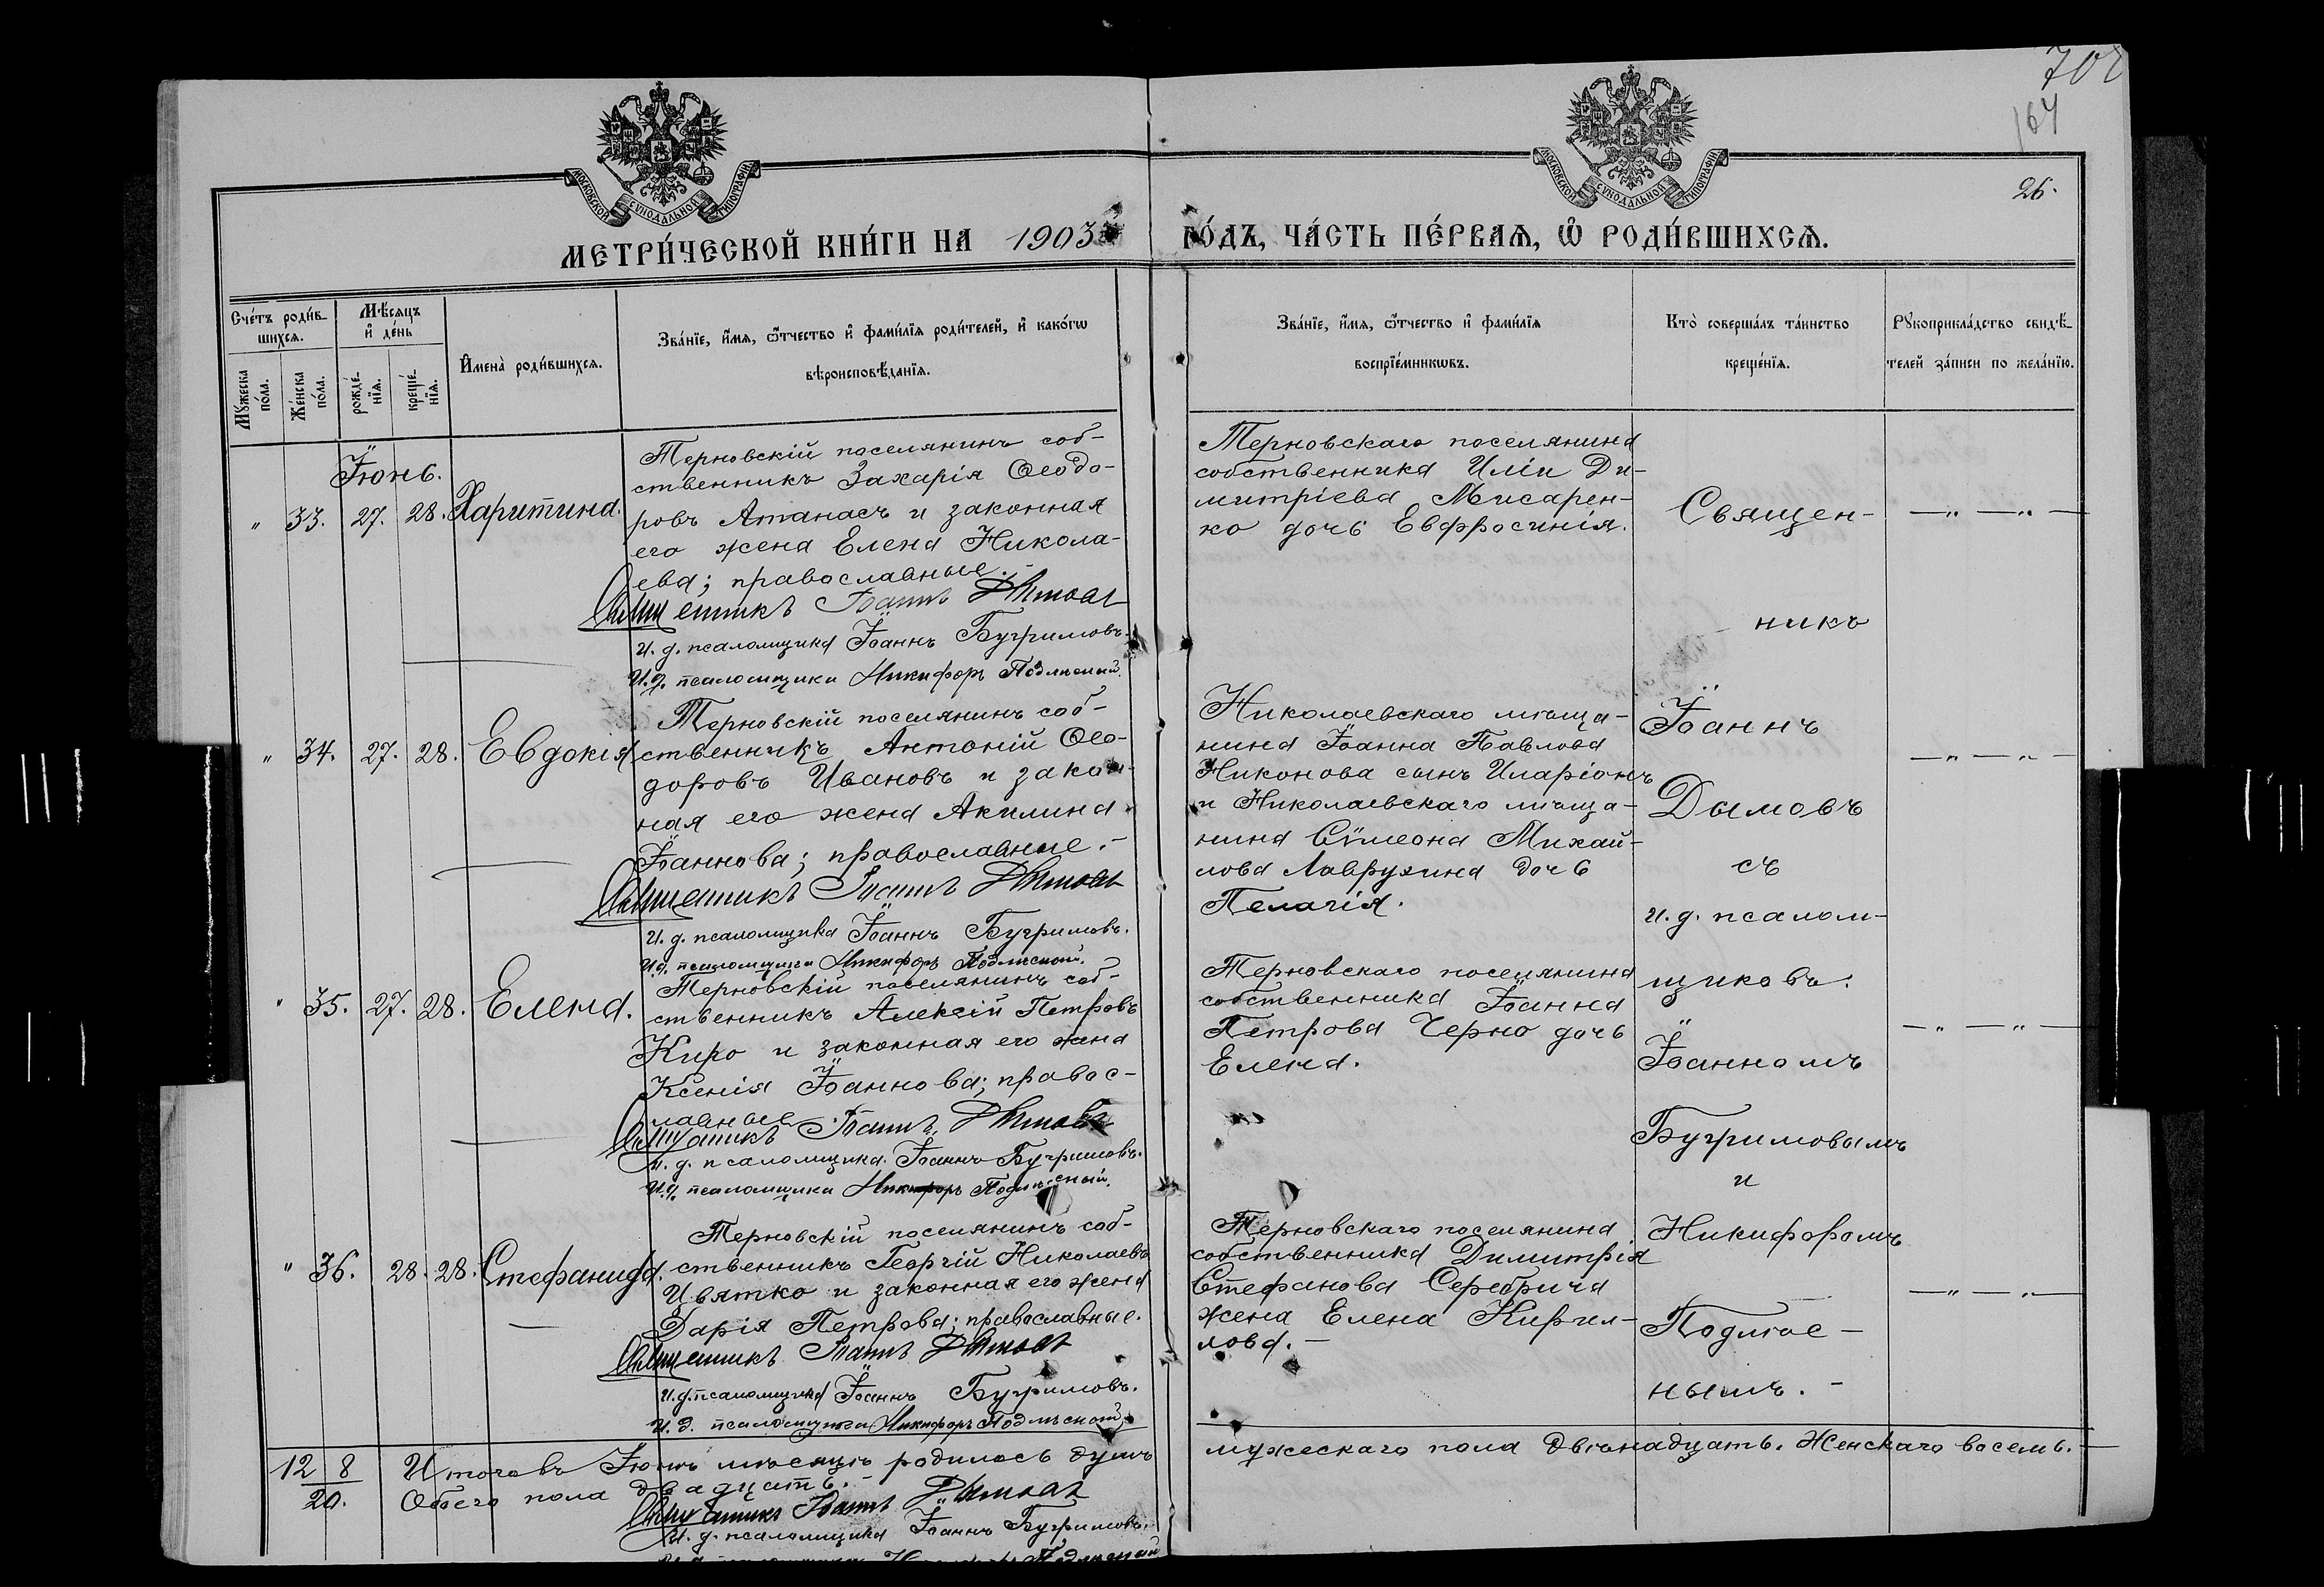 702
164
26.
МОСКОВСКОЙ СѴНОДАЛЬНОЙ ТИПОГРАФІИ
МОСКОВСКОЙ СѴНОДАЛЬНОЙ ТИПОГРАФІИ
МЕТРИ́ЧЕСКОЙ КНИ́ГИ НА 1903 ГО́ДЪ, ЧА́СТЬ ПЕ́РВАѦ, Ѽ РОДИ́ВШИХСѦ.
Сче́тъ роди́в-
шихсѧ.
Мꙋ́жеска по́ла.
Же́нска по́ла.
Мѣ́сѧцъ
и҆ де́нь
рожде́-
нїѧ.
креще́-
нїѧ.
И҆мена̀ роди́вшихсѧ.
Зва́нїе, и҆́мѧ, ѻ҆́тчество и҆ фами́лїѧ роди́телей, и҆ како́гѡ
вѣроисповѣ́данїѧ.
Зва́нїе, и҆́мѧ, ѻ҆́тчество и҆ фами́лїѧ
воспрїе́мникѡвъ.
Кто̀ соверша́лъ та́инство
креще́нїѧ.
Рꙋкоприкла́дство свидѣ́-
телей за́писи по жела́нїю.
Іюнь.
" 33. 27. 28. Харитина.
Терновскій поселянинъ соб-
ственникъ Захарія Ѳеодо-
ровъ Атанасъ и законная
его жена Елена Никола-
ева; православные.-
Священникъ Іоаннъ Дымовъ
И. д. псаломщика Іоаннъ Бугримовъ.
И. д. псаломщика Никифоръ Подлѣсный.
Терновскаго поселянина
собственника Иліи Ди-
митріева Мисарен-
ко дочь Евфросинія.
Священ-
никъ
Іоаннъ
Дымовъ
съ
и. д. псалом-
щиковъ:
Іоанномъ
Бугримовымъ
и
Никифоромъ
Подлѣс-
нымъ.-
" 34. 27. 28. Евдокія
Терновскій поселянинъ соб-
ственникъ Антоній Ѳео-
доровъ Ивановъ и закон-
ная его жена Акилина
Іоаннова; православные.-
Священникъ Іоаннъ Дымовъ
И. д. псаломщика Іоаннъ Бугримовъ.
И. д. псаломщика Никифоръ Подлѣсный.
Николаевскаго мѣща-
нина Іоанна Павлова
Никонова сынъ Иларіонъ
и Николаевскаго мѣща-
нина Сѵмеона Михай-
лова Лаврухина дочь
Пелагія.
" 35. 27. 28. Елена.
Терновскій поселянинъ соб-
ственникъ Алексій Петровъ
Киро и законная его жена
Ксенія Іоаннова; правос-
лавные
Священникъ Іоаннъ Дымовъ
И. д. псаломщика Іоаннъ Бугримовъ.
И. д. псаломщика Никифоръ Подлѣсный.
Терновскаго поселянина
собственника Іоанна
Петрова Черно дочь
Елена.
" 36. 28. 28. Стефанида.
Терновскій поселянинъ соб-
ственникъ Георгій Николаевъ
Цвятко и законная его жена
Дарія Петрова; православные.
Священникъ Іоаннъ Дымовъ
И. д. псаломщика Іоаннъ Бугримовъ.
И. д. псаломщика Никифоръ Подлѣсный.
Терновскаго поселянина
собственника Димитрія
Стефанова Серебрича
жена Елена Кирил-
лова.-
12 8 Итого въ Іюнѣ мѣсяцѣ родилось душъ мужескаго пола двѣнадцать. Женскаго восемь.
20. Обоего пола двадцать.-
Священникъ Іоаннъ Дымовъ
И. д. псаломщика Іоаннъ Бугримовъ.